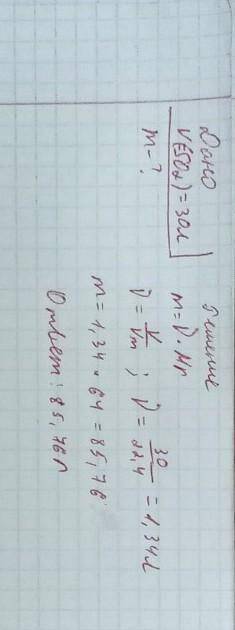 Дано
V(SO₂)=30л
m-?
Решение
m=ν·Mr
ν=V/Vm ; ν=30/22,4=1,34л
m=1,34·64=85,76
Ответ: 85,76г